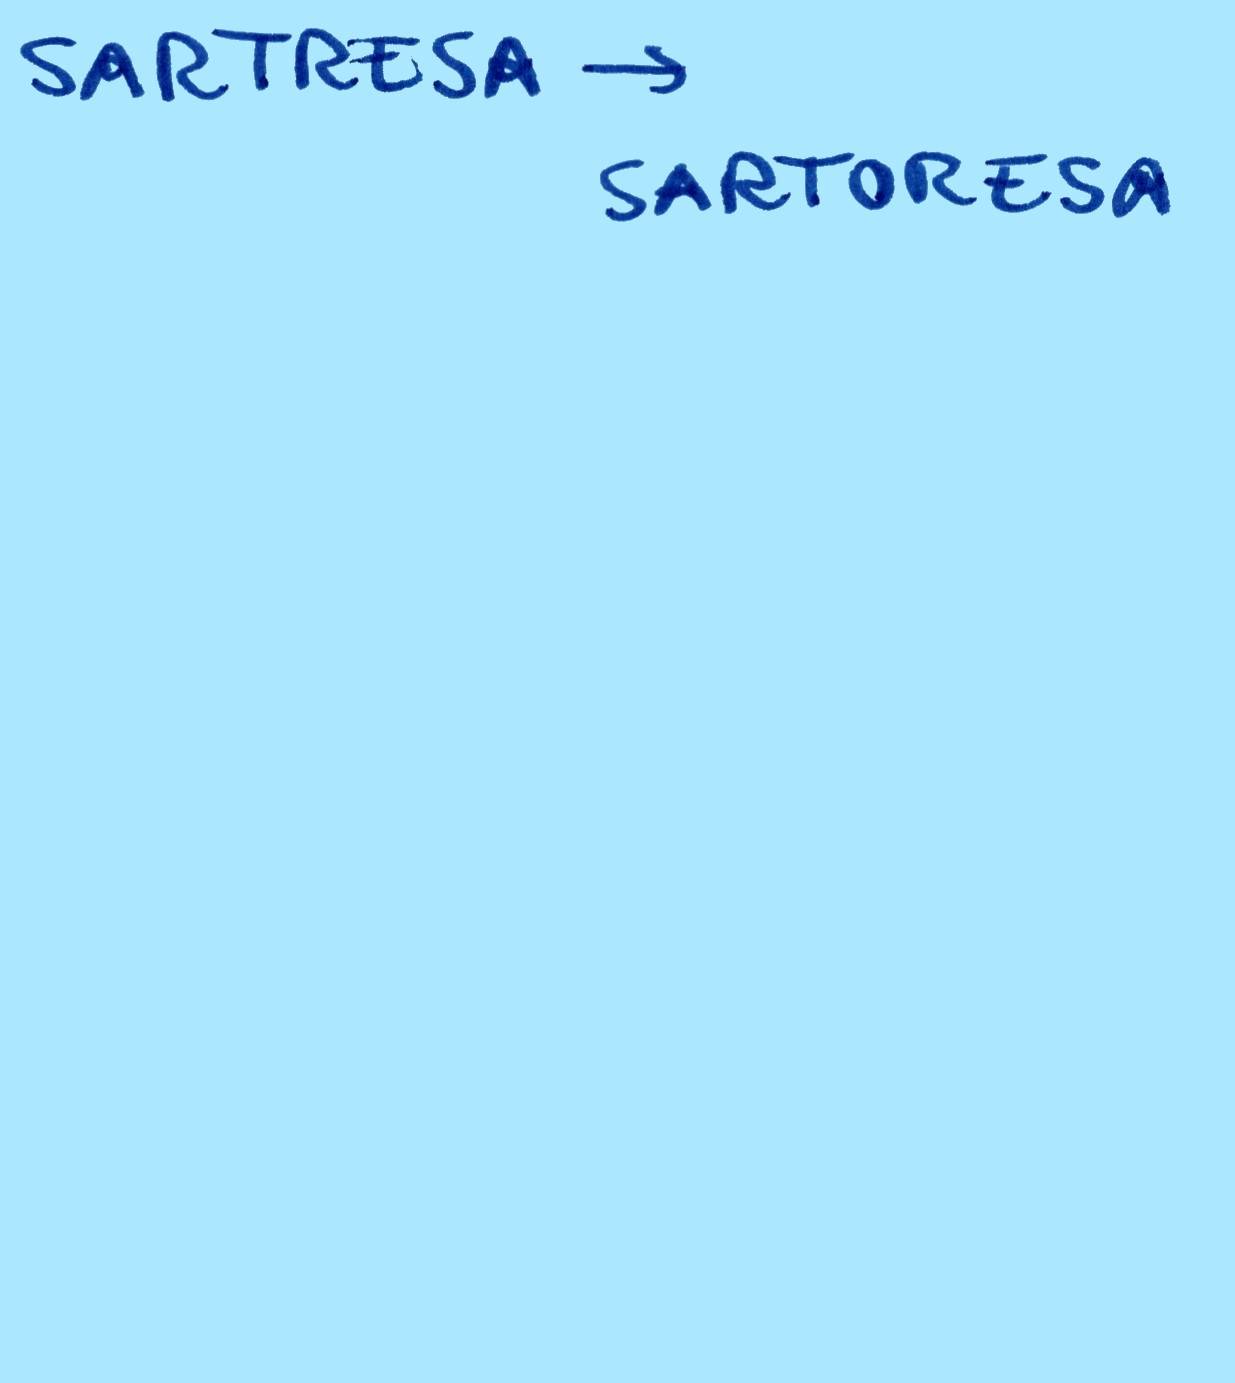 SARTRESA →
SARTORESA